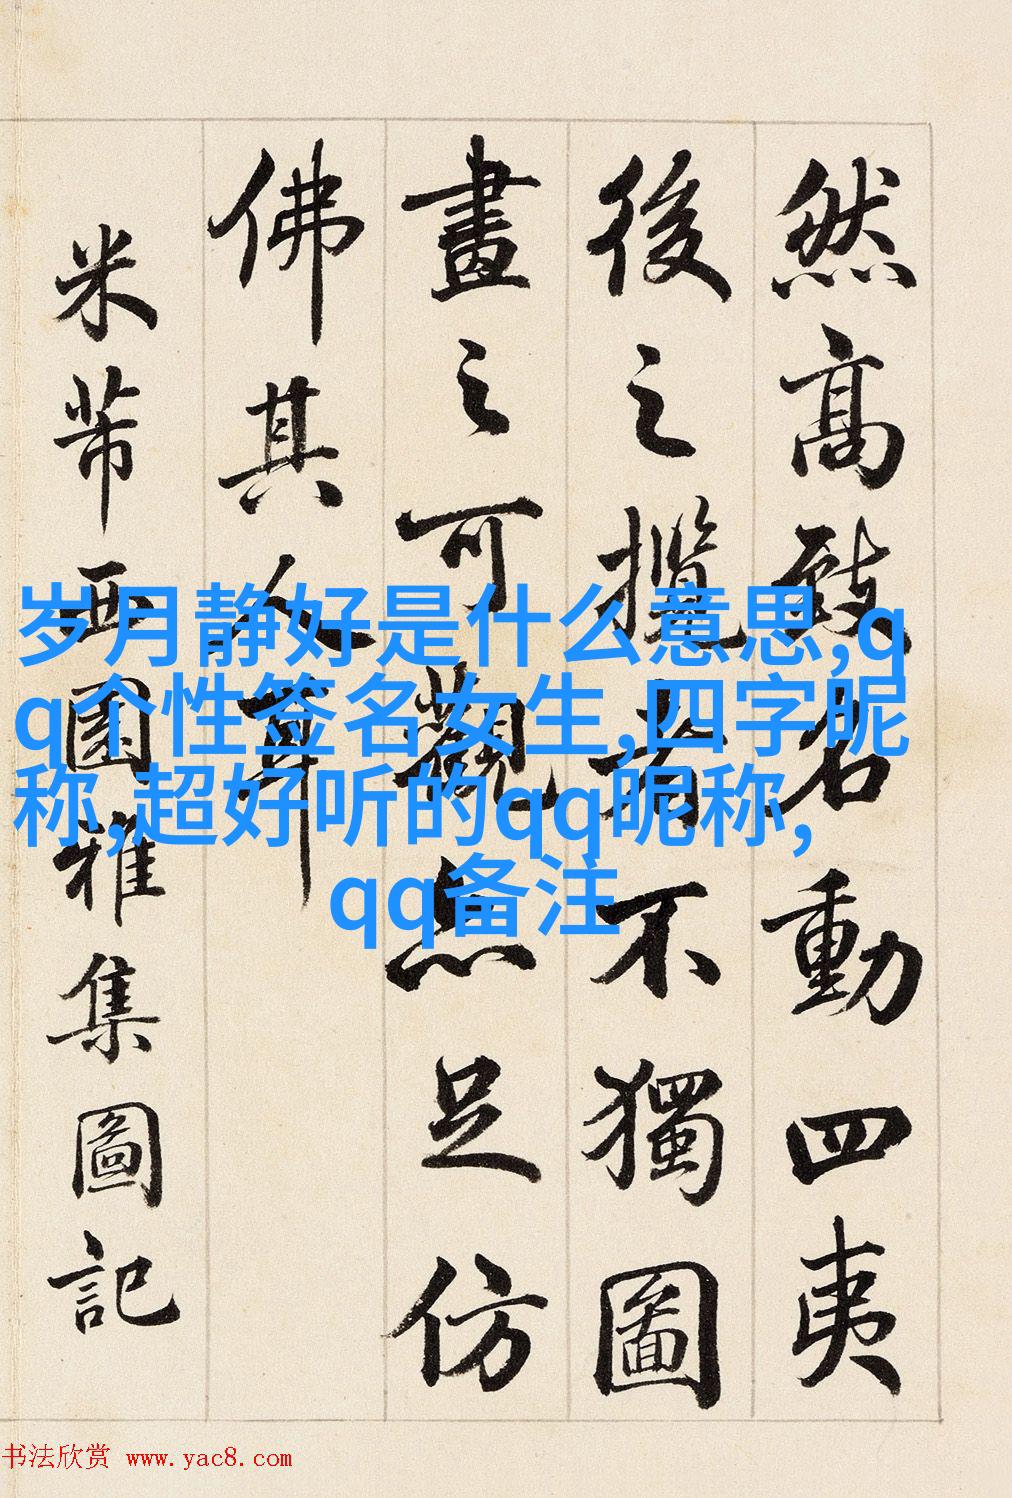 然高致名動四夷
後之攬者不獨圖
畫之可觀亦足仿
佛其人耳
米芾西園雅集圖記
岁月静好是什么意思,q
q个性签名女生,四字昵
称,超好听的qq昵称,
qq备注
书法欣赏 www.yac8.com